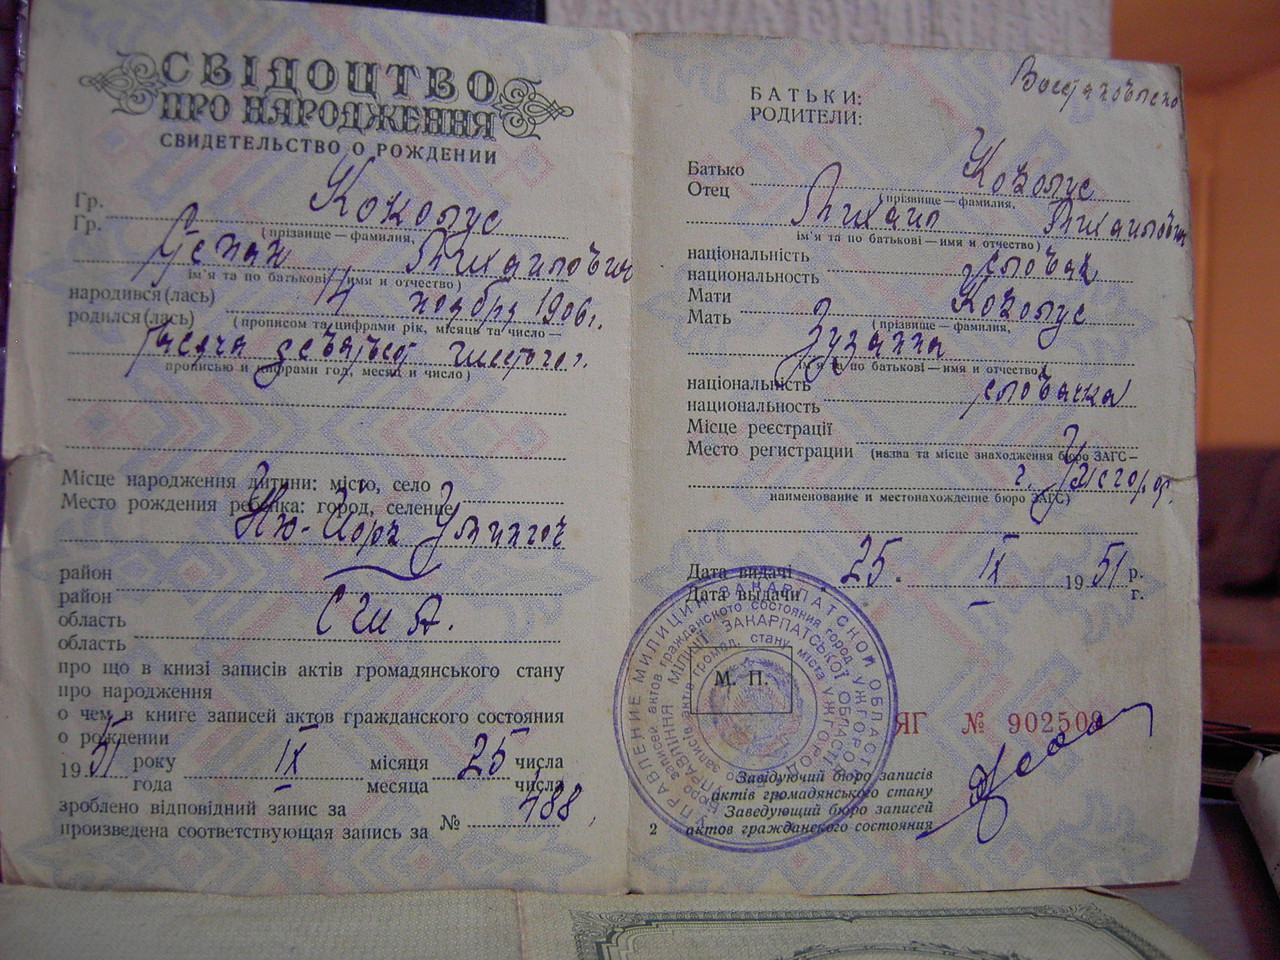 СВІДОЦТВО
ПРО НАРОДЖЕННЯ
СВИДЕТЕЛЬСТВО О РОЖДЕНИИ
Гр.
Гр. Кокопус
(прізвище — фамилия,
Михайлович
ім'я та по батькові — имя и отчество)
народився(лась)
родился(лась) 14 ноября 1906 г.
(прописом та цифрами рік, місяць та число —
тысяча девятьсот шестого г.
прописью и цифрами год, месяц и число)
Місце народження дитини: місто, село
Место рождения ребенка: город, селение
Нью-Йорк
район
район
область
область С Ш А.
про що в книзі записів актів громадянського стану
про народження
о чем в книге записей актов гражданского состояния
о рождении
1951 року IX місяця 25 числа
года месяца числа
зроблено відповідний запис за
произведена соответствующая запись за № 488
Восстановлено
БАТЬКИ:
РОДИТЕЛИ:
Батько
Отец Кокопус
(прізвище — фамилия,
Михаил Михайлович
ім'я та по батькові — имя и отчество)
національність
национальность словак
Мати
Мать Кокопус
(прізвище — фамилия,
Зузанна
ім'я та по батькові — имя и отчество)
національність
национальность словачка
Місце реєстрації
Место регистрации
(назва та місце знаходження бюро ЗАГС —
г. Ужгород.
наименование и местонахождение бюро ЗАГС)
Дата видачі
Дата выдачи 25. IX 1951 р.
г.
М. П.
ЯГ № 902509
Завідуючий бюро записів
актів громадянського стану
Заведующий бюро записей
2 актов гражданского состояния